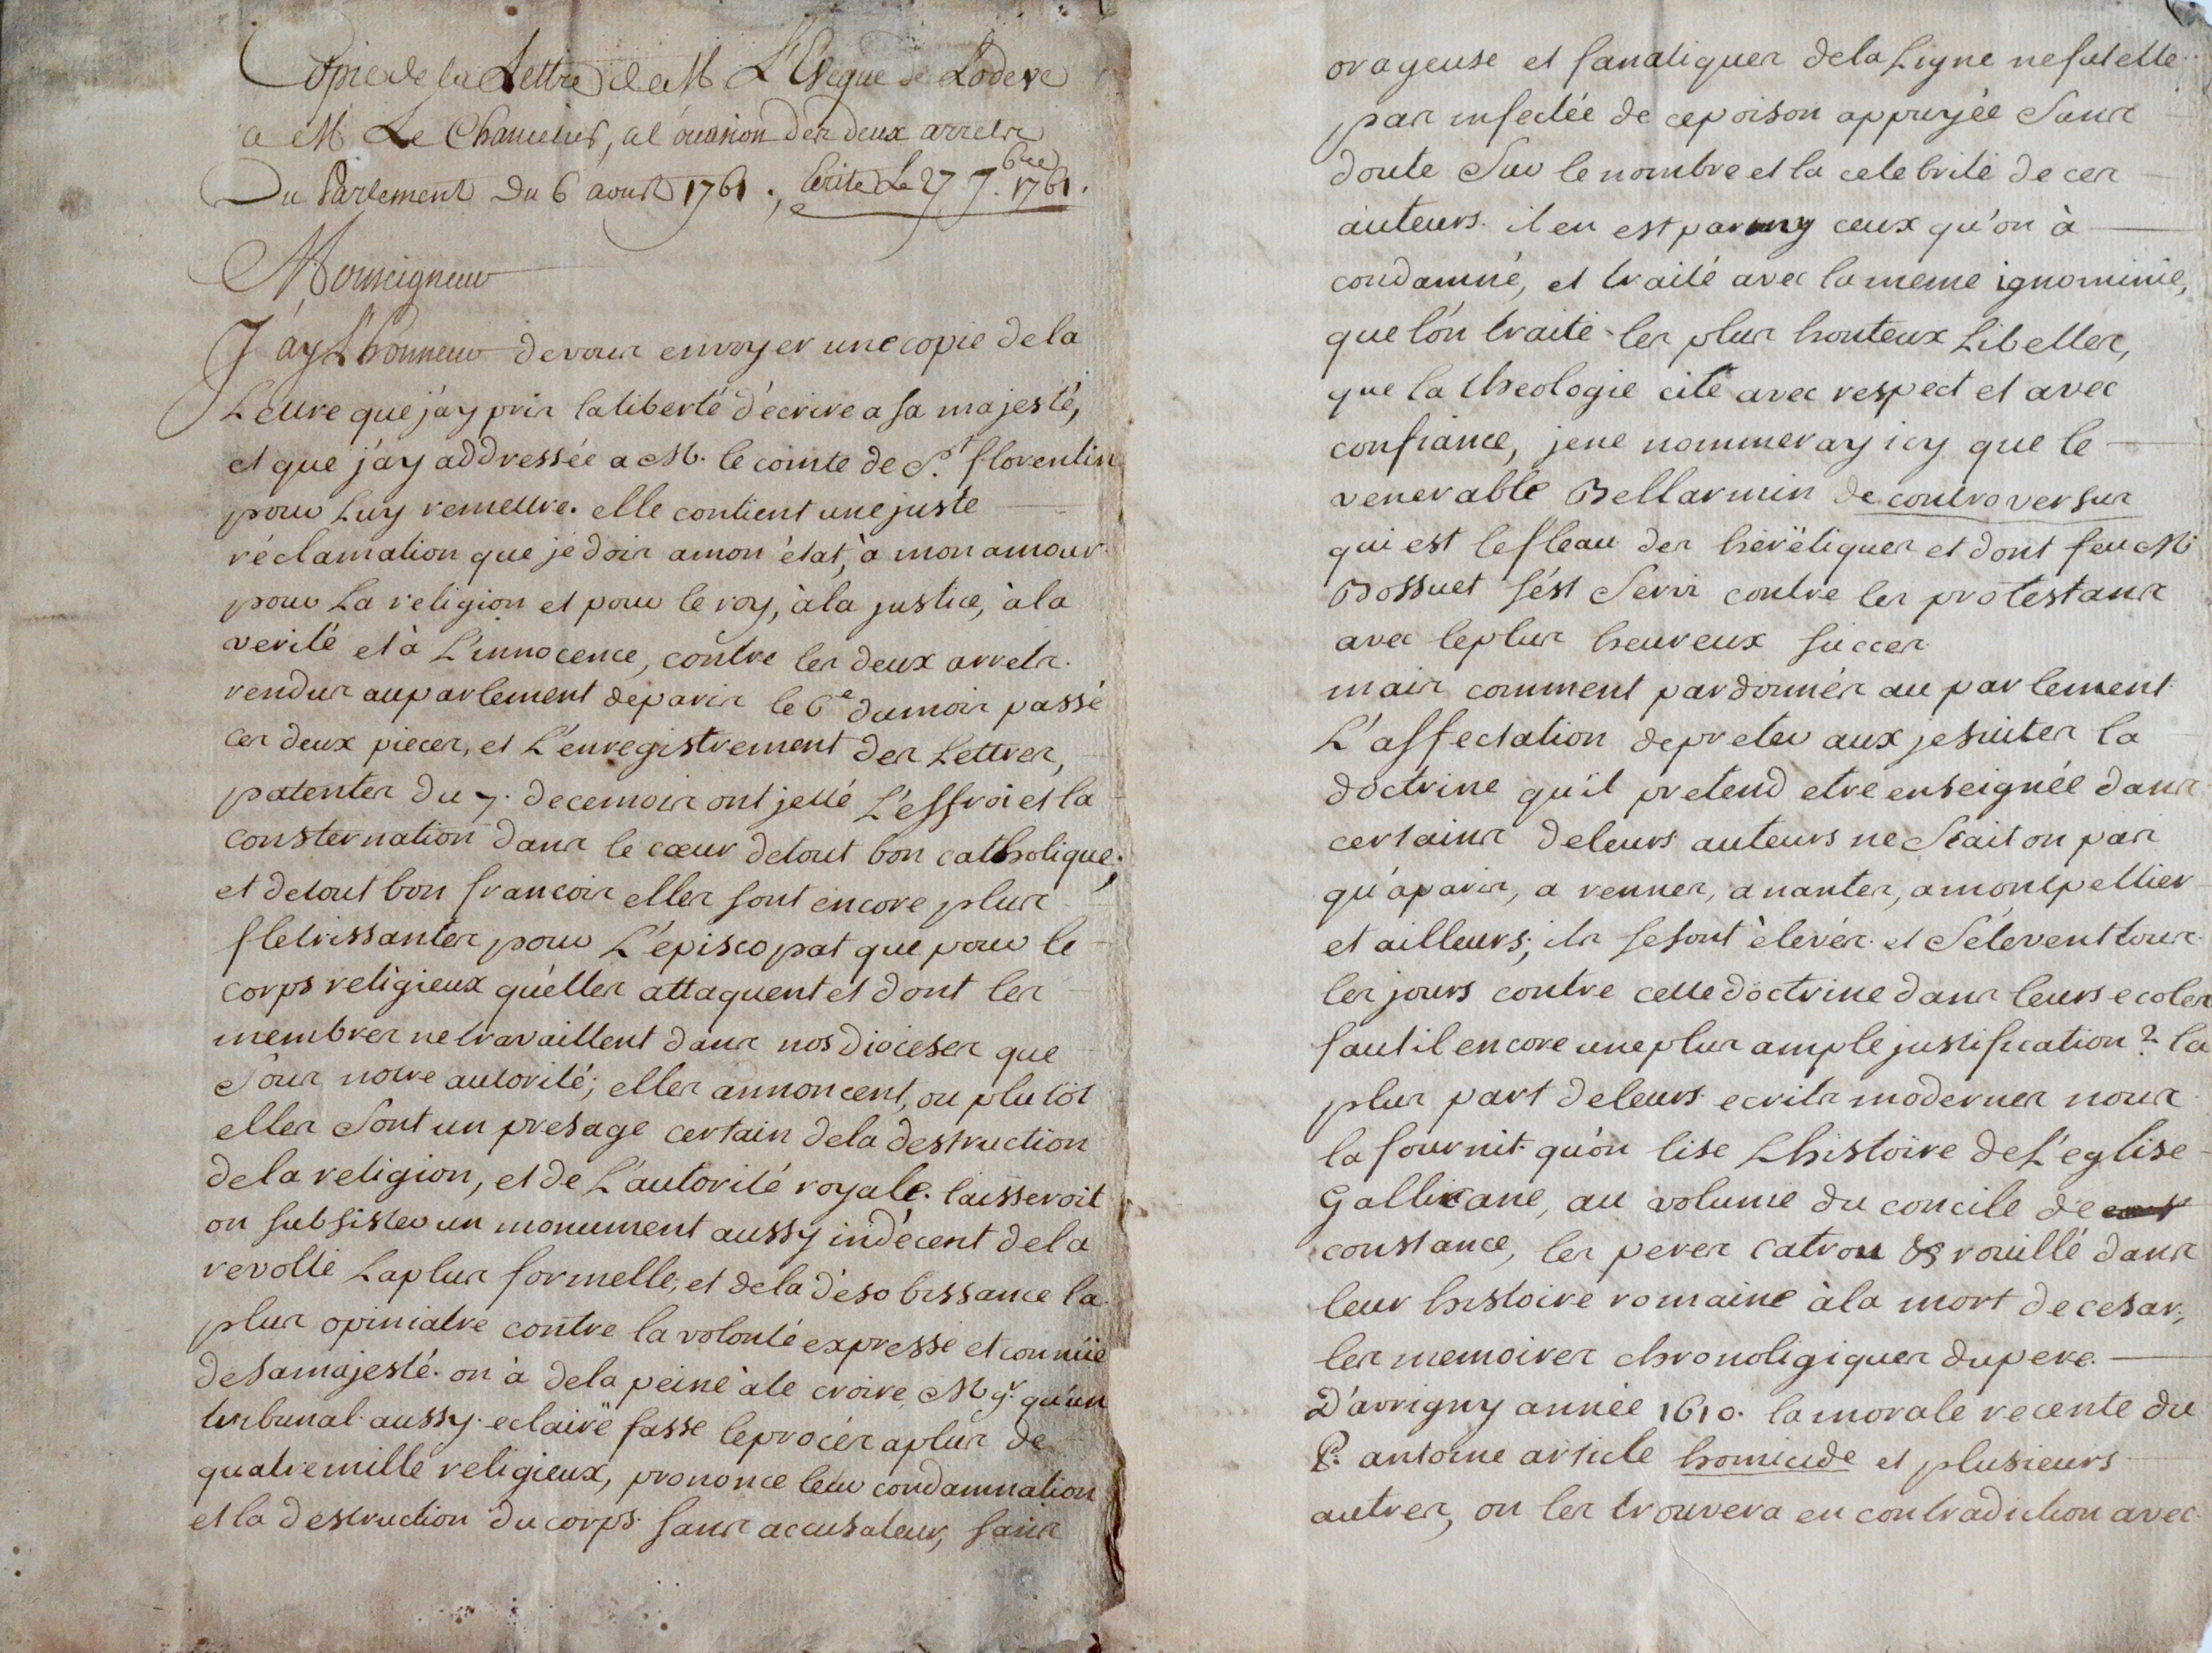 Copie de la Lettre de M L'Eveque de Lodeve
a M Le Chancelier, a l'ocasion des deux arrets
Du Parlement du 6 aoust 1761. ecrite Le 27 7.bre 1761.
Monseigneur
J'ay L'honneur de vous envoyer une copie de la
Lettre que j'ay pris la liberté d'écrire a sa majesté,
et que j'ay addressée a M. le comte de St. florentin
pour Luy remettre. elle contient une juste
réclamation que je dois a mon état, à mon amour
pour La religion et pour le roy, à la justice, à la
verité et à L'innocence, contre les deux arrets
rendus au parlement de paris le 6e du mois passé
ces deux pieces, et L'enregistrement des Lettres,
patentes du 7. de ce mois ont jetté L'effroi et la
consternation dans le cœur de tout bon catholique;
et de tout bon francois elles sont encore plus
fletrissantes pour L'épiscopat que pour le
corps religieux qu'elles attaquent et dont les
membres ne travaillent dans nos dioceses que
Sous notre autorité; elles annoncent, ou plutôt
elles Sont un presage certain de la destruction
de la religion, et de L'autorité royale. laisseroit
on subsister un monument aussy indécent de la
revolte La plus formelle, et de la désobissance la
plus opiniatre contre la volonté expresse et connüe
de sa majesté. on à de la peine à le croire, Mgr. qu'un
tribunal aussy eclairé fasse le procés a plus de
quatre mille religieux, prononce leur condamnation
et la destruction du corps sans accusateur, sans
orageuse et fanatiques de la Ligue ne fut elle
pas infectée de ce poison appuyée Sans
doute Sur le nombre et la celebrité de ces
auteurs. il en est parmy ceux qu'on à
condamné, et traité avec la meme ignominie,
que l'on traite les plus honteux Libelles,
que la theologie cite avec respect et avec
confiance, je ne nommeray icy que le
venerable Bellarmin de controversus
qui est le fleau des héretiques et dont feu M
Bossuet s'est Servi contre les protestans
avec le plus heureux succes
mais comment pardonner au parlement
L'affectation de preter aux jesuites la
doctrine qu'il pretend etre enseignée dans
certains de leurs auteurs ne Scait on pas
qu'a paris, a rennes, a nantes, a montpellier
et ailleurs; ils se sont élevés et S'élevent tous
les jours contre cette doctrine dans leurs ecoles
faut il encore une plus ample justification? la
plus part de leurs ecrits modernes nous
la fournit qu'on lise L'histoire de L'eglise
Gallicane, au volume du concile de
constance, les peres catrou & rouillé dans
leur histoire romaine à la mort de cesar,
les memoires chronoligiques du pere
D'avrigny année 1610. la morale recente du
P. antoine article homicide et plusieurs
autres, on les trouvera en contradiction avec